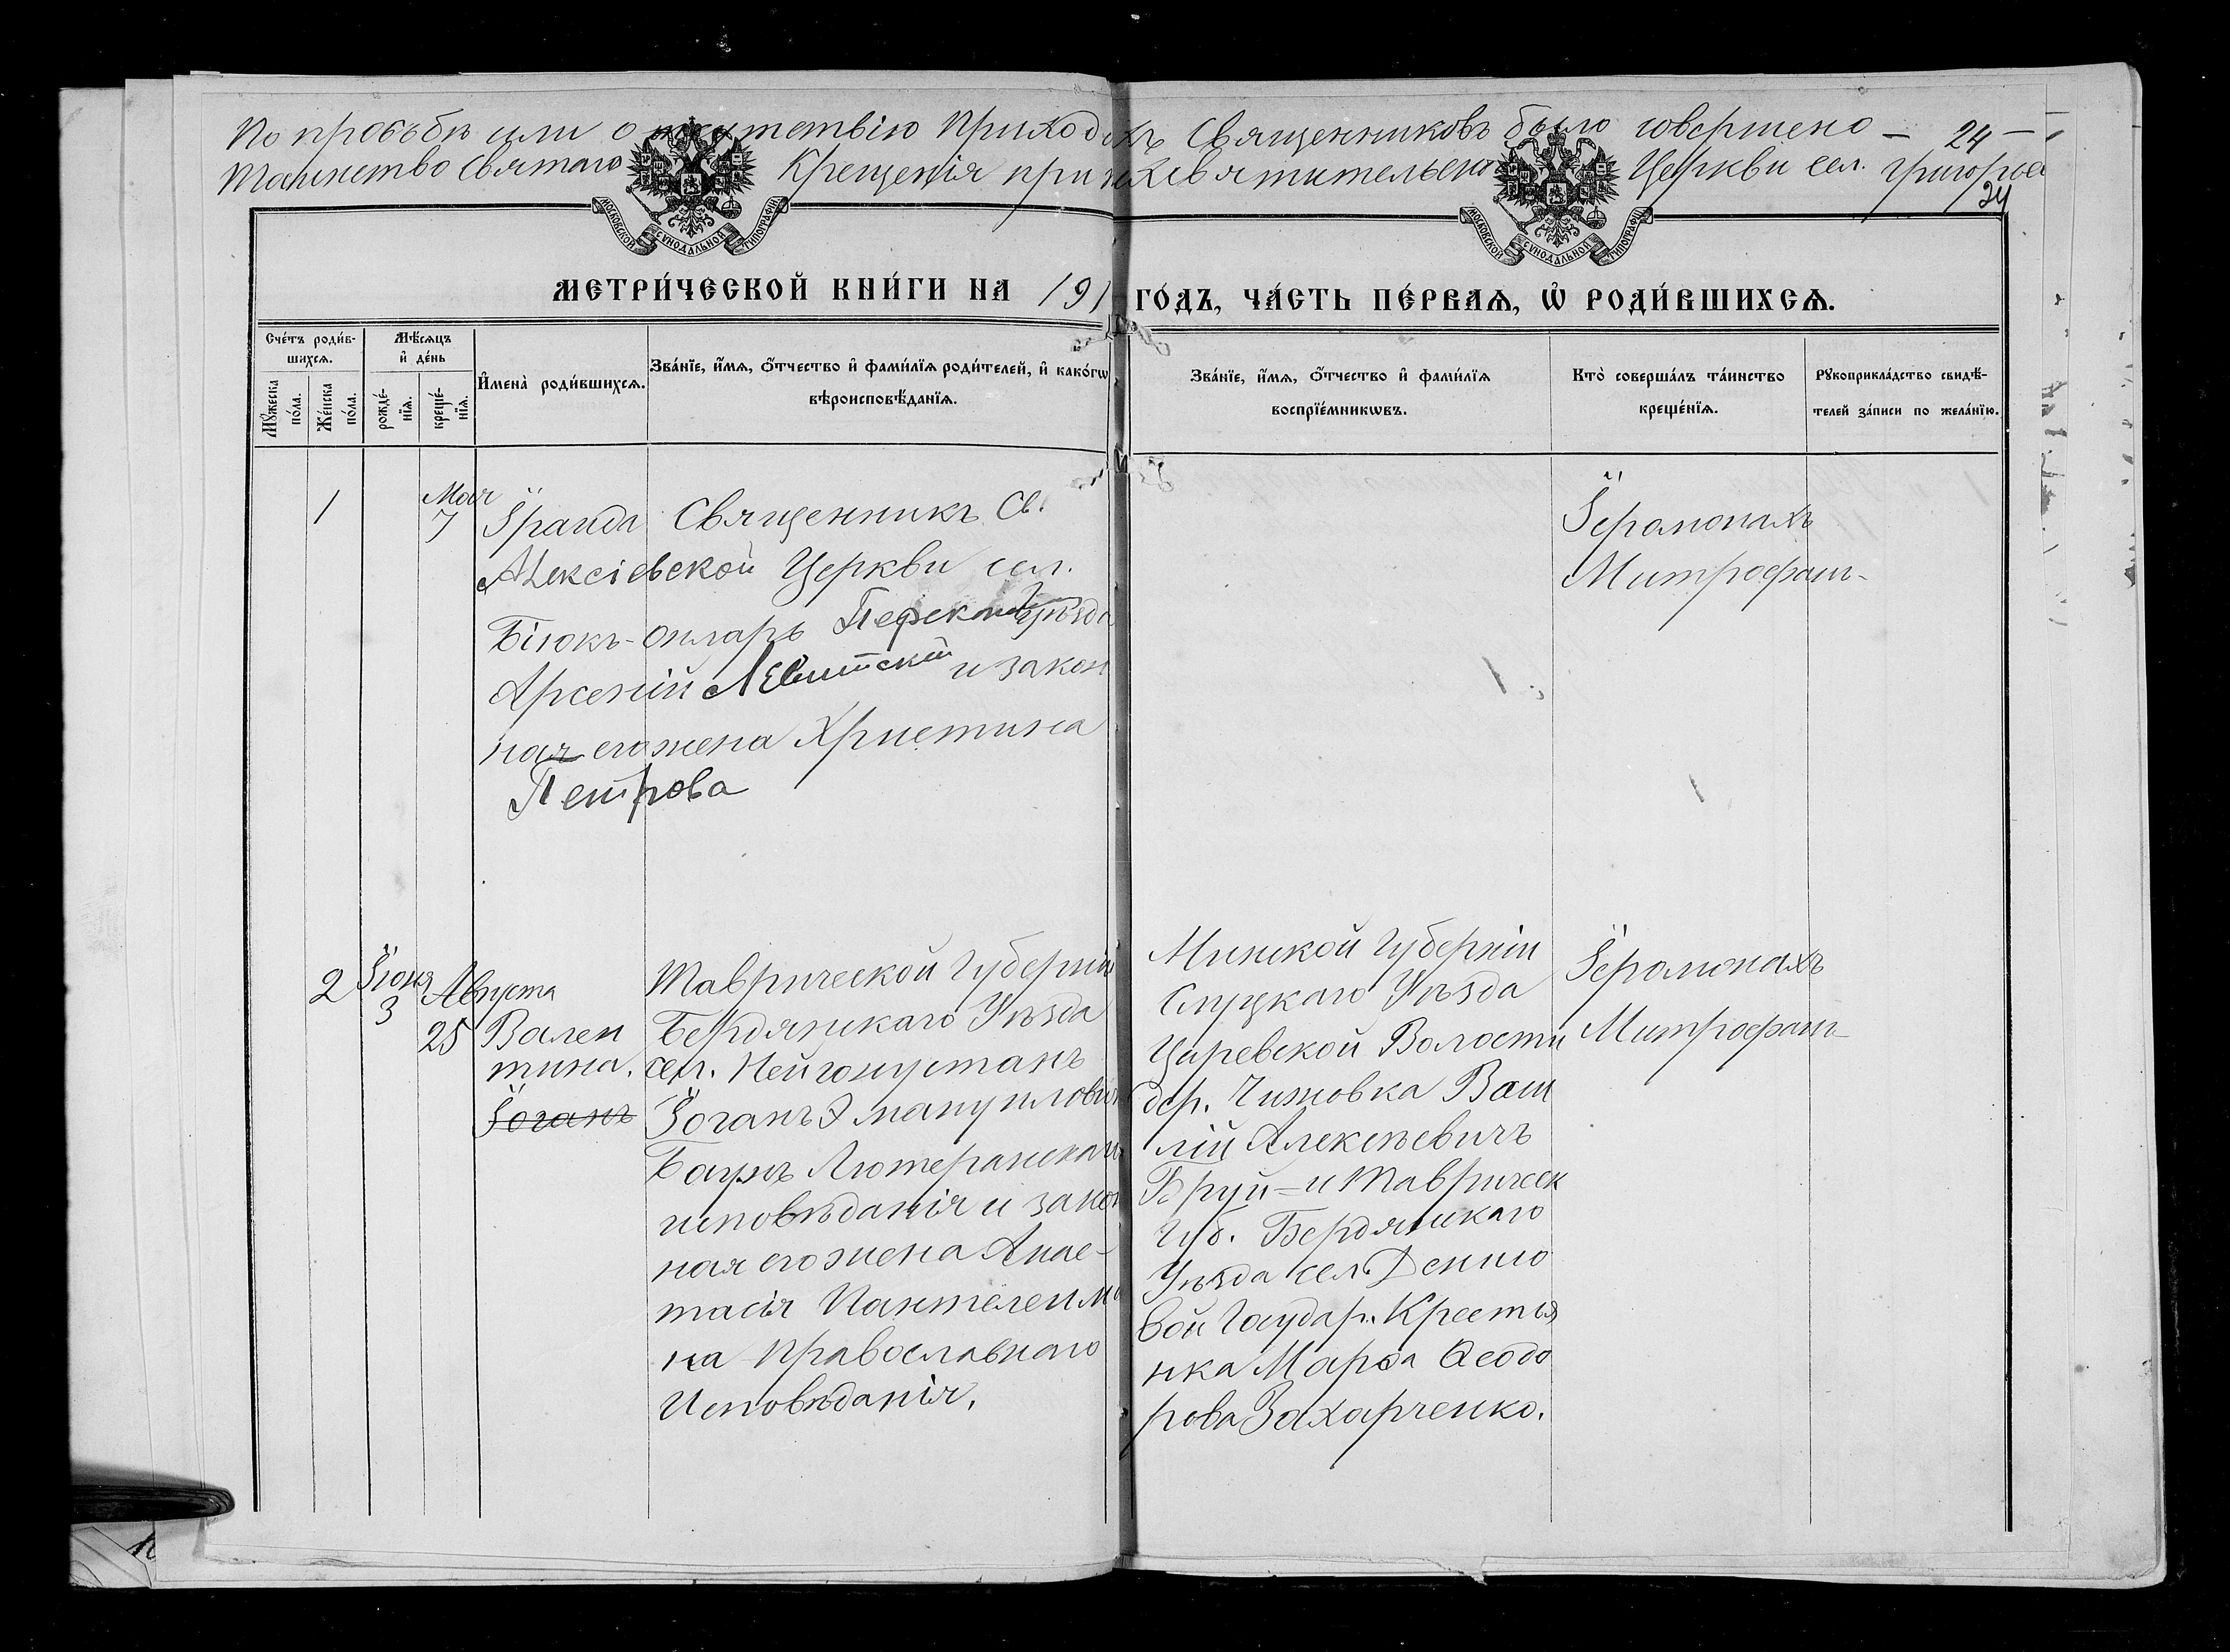 По просьбѣ или о Приходскъ Священниковъ было совершено – 24 –
Таинство Святаго Крещенія при Церкви сел.
24
МОСКОВСКОЙ СѴНОДАЛЬНОЙ ТИПОГРАФІИ
МОСКОВСКОЙ СѴНОДАЛЬНОЙ ТИПОГРАФІИ
МЕТРИ́ЧЕСКОЙ КНИ́ГИ НА 191 ГО́ДЪ, ЧА́СТЬ ПЕ́РВАѦ, Ѡ҆ РОДИ́ВШИХСѦ.
Сче́тъ роди́в-
шихсѧ.
Мꙋ́жеска по́ла.
Же́нска по́ла.
Мѣ́сѧцъ
и҆ де́нь
рожде́-
нїѧ.
креще́-
нїѧ.
И҆мена̀ роди́вшихсѧ.
Зва́нїе, и҆́мѧ, ѻ҆́тчество и҆ фами́лїѧ роди́телей, и҆ како́гѡ
вѣроисповѣ́данїѧ.
Зва́нїе, и҆́мѧ, ѻ҆́тчество и҆ фами́лїѧ
воспрїе́мникѡвъ.
Кто̀ соверша́лъ та́инство
креще́нїѧ.
Рꙋкоприкла́дство свидѣ́-
телей за́писи по жела́нїю.
1
Мая
7
Їраида
Священникъ Св.
Алексіевской Церкви сел.
Біюкъ-Онларъ Уѣзда
Арсеній Левитскій и закон
ная его жена Христина
Петрова
Їеромонахъ
Митрофанъ
2
Їюня
3
Августа
25
Вален
тина.
Їоганъ
Таврической Губерніи
Бердянскаго Уѣзда
сел.
Їоганъ Эмануиловичъ
Бауръ Лютеранскаго
исповѣданія и закон
ная его жена Анас-
тасія Пантелеимо
на Православнаго
Исповѣданія.
Минской Губерніи
Слуцкаго Уѣзда
Царевской Волости
дер. Чижовка Васи
лій Алексѣевичъ
Бруй – и Таврическ
Губ. Бердянскаго
Уѣзда сел. Денисо
вой Государ. Крестья
нка Марѳа Ѳеодо
рова Захарченко.
Їеромонахъ
Митрофанъ